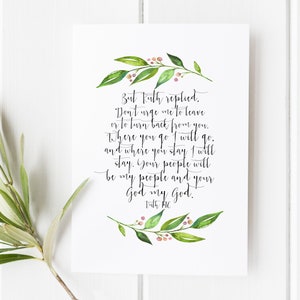 But Ruth replied,
Don't urge me to leave
or to turn back from you.
Where you go I will go,
and where you stay I will
stay. Your people will
be my people and your
God my God.
Ruth 1:16